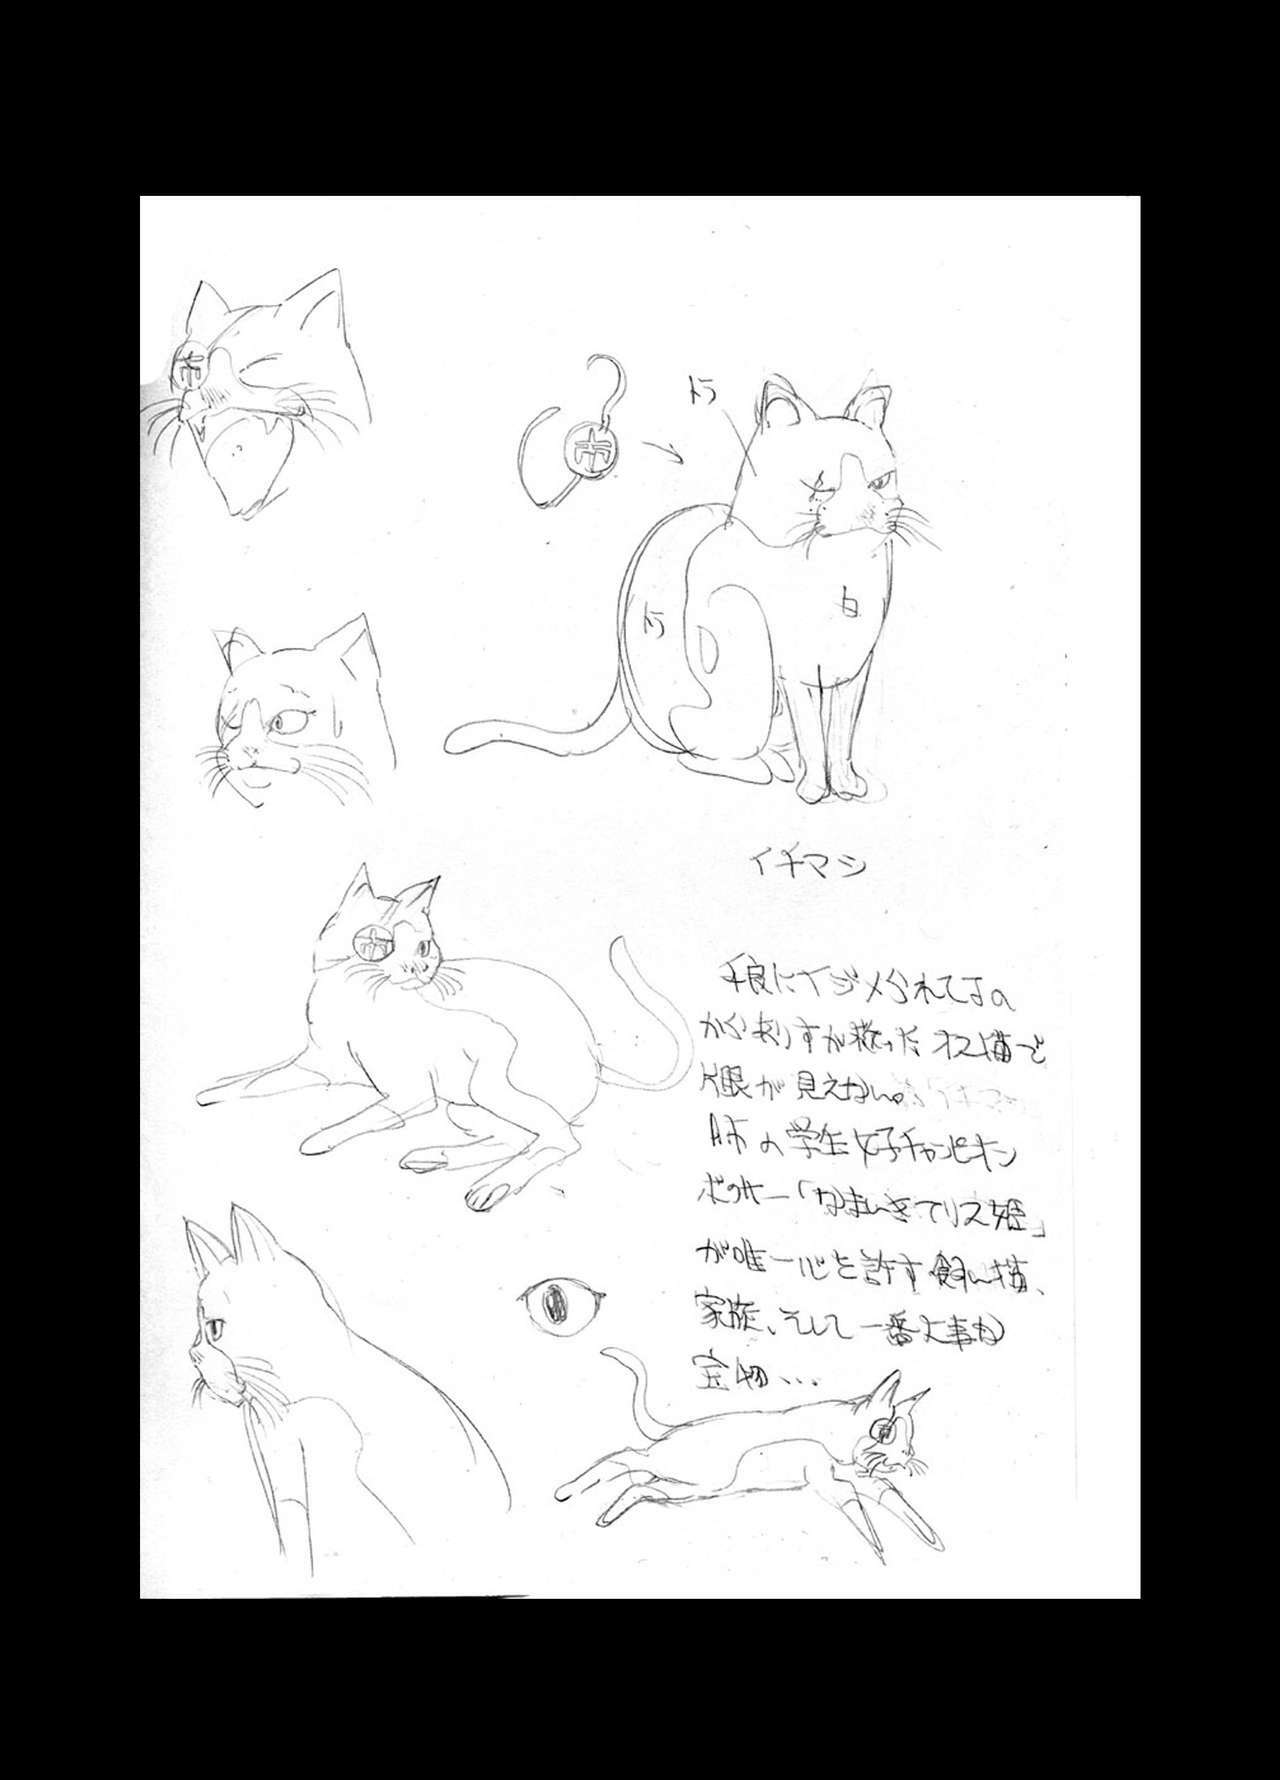 トラ
トラ
白
イチマシ
狼にイジメられてたの
からありすが救ったオス猫で
片眼が見えない。
の学生女子チャンピオン
ボクサー「なまいきアリス姫」
が唯一心を許す飼い猫、
家族、そして一番大事な
宝物...